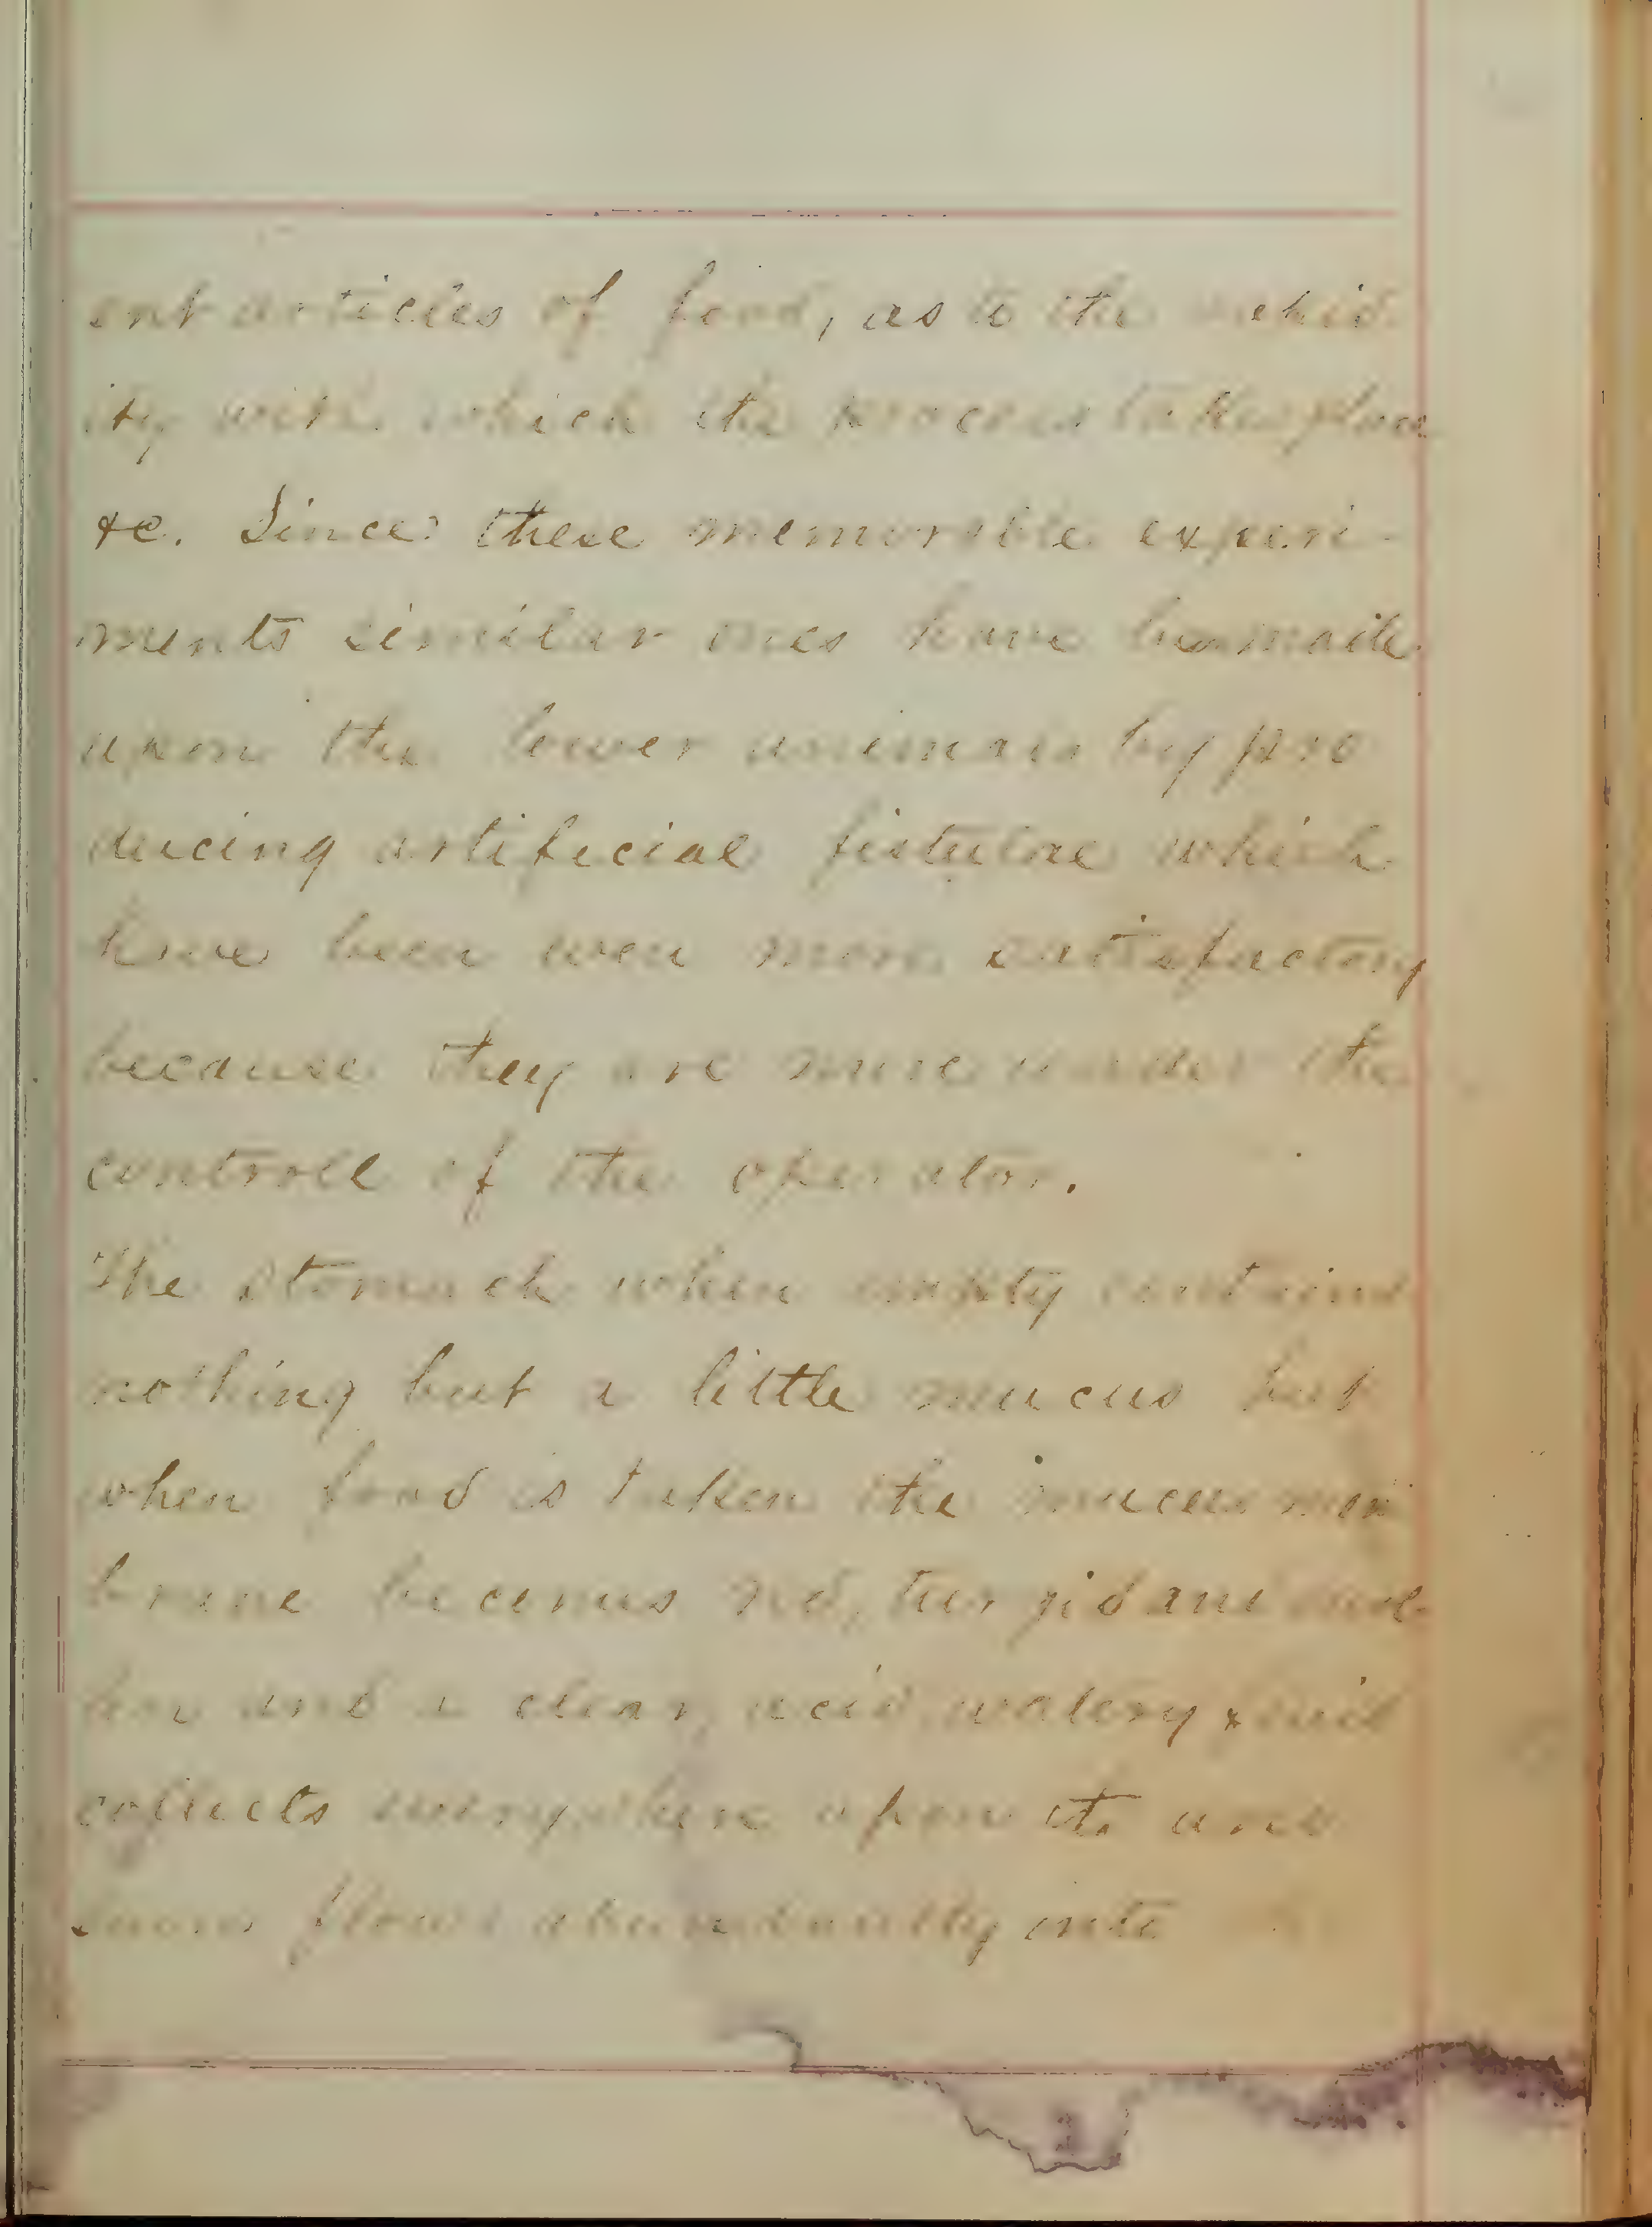 ent articles of food, as to the rapid
ity with which the process takes place
&c. Since these memorable experi-
ments similar ones have been made
upon the lower animals by pro
ducing artificial fistulae which
have been even more satisfactory
because they are more under the
controll of the operator.
The stomach when empty contains
nothing but a little mucus but
when food is taken the mucus mem
brane becomes red, turgid and
and a clear, acid, watery fluid
collects everywhere upon it and
soon flows abundantly into